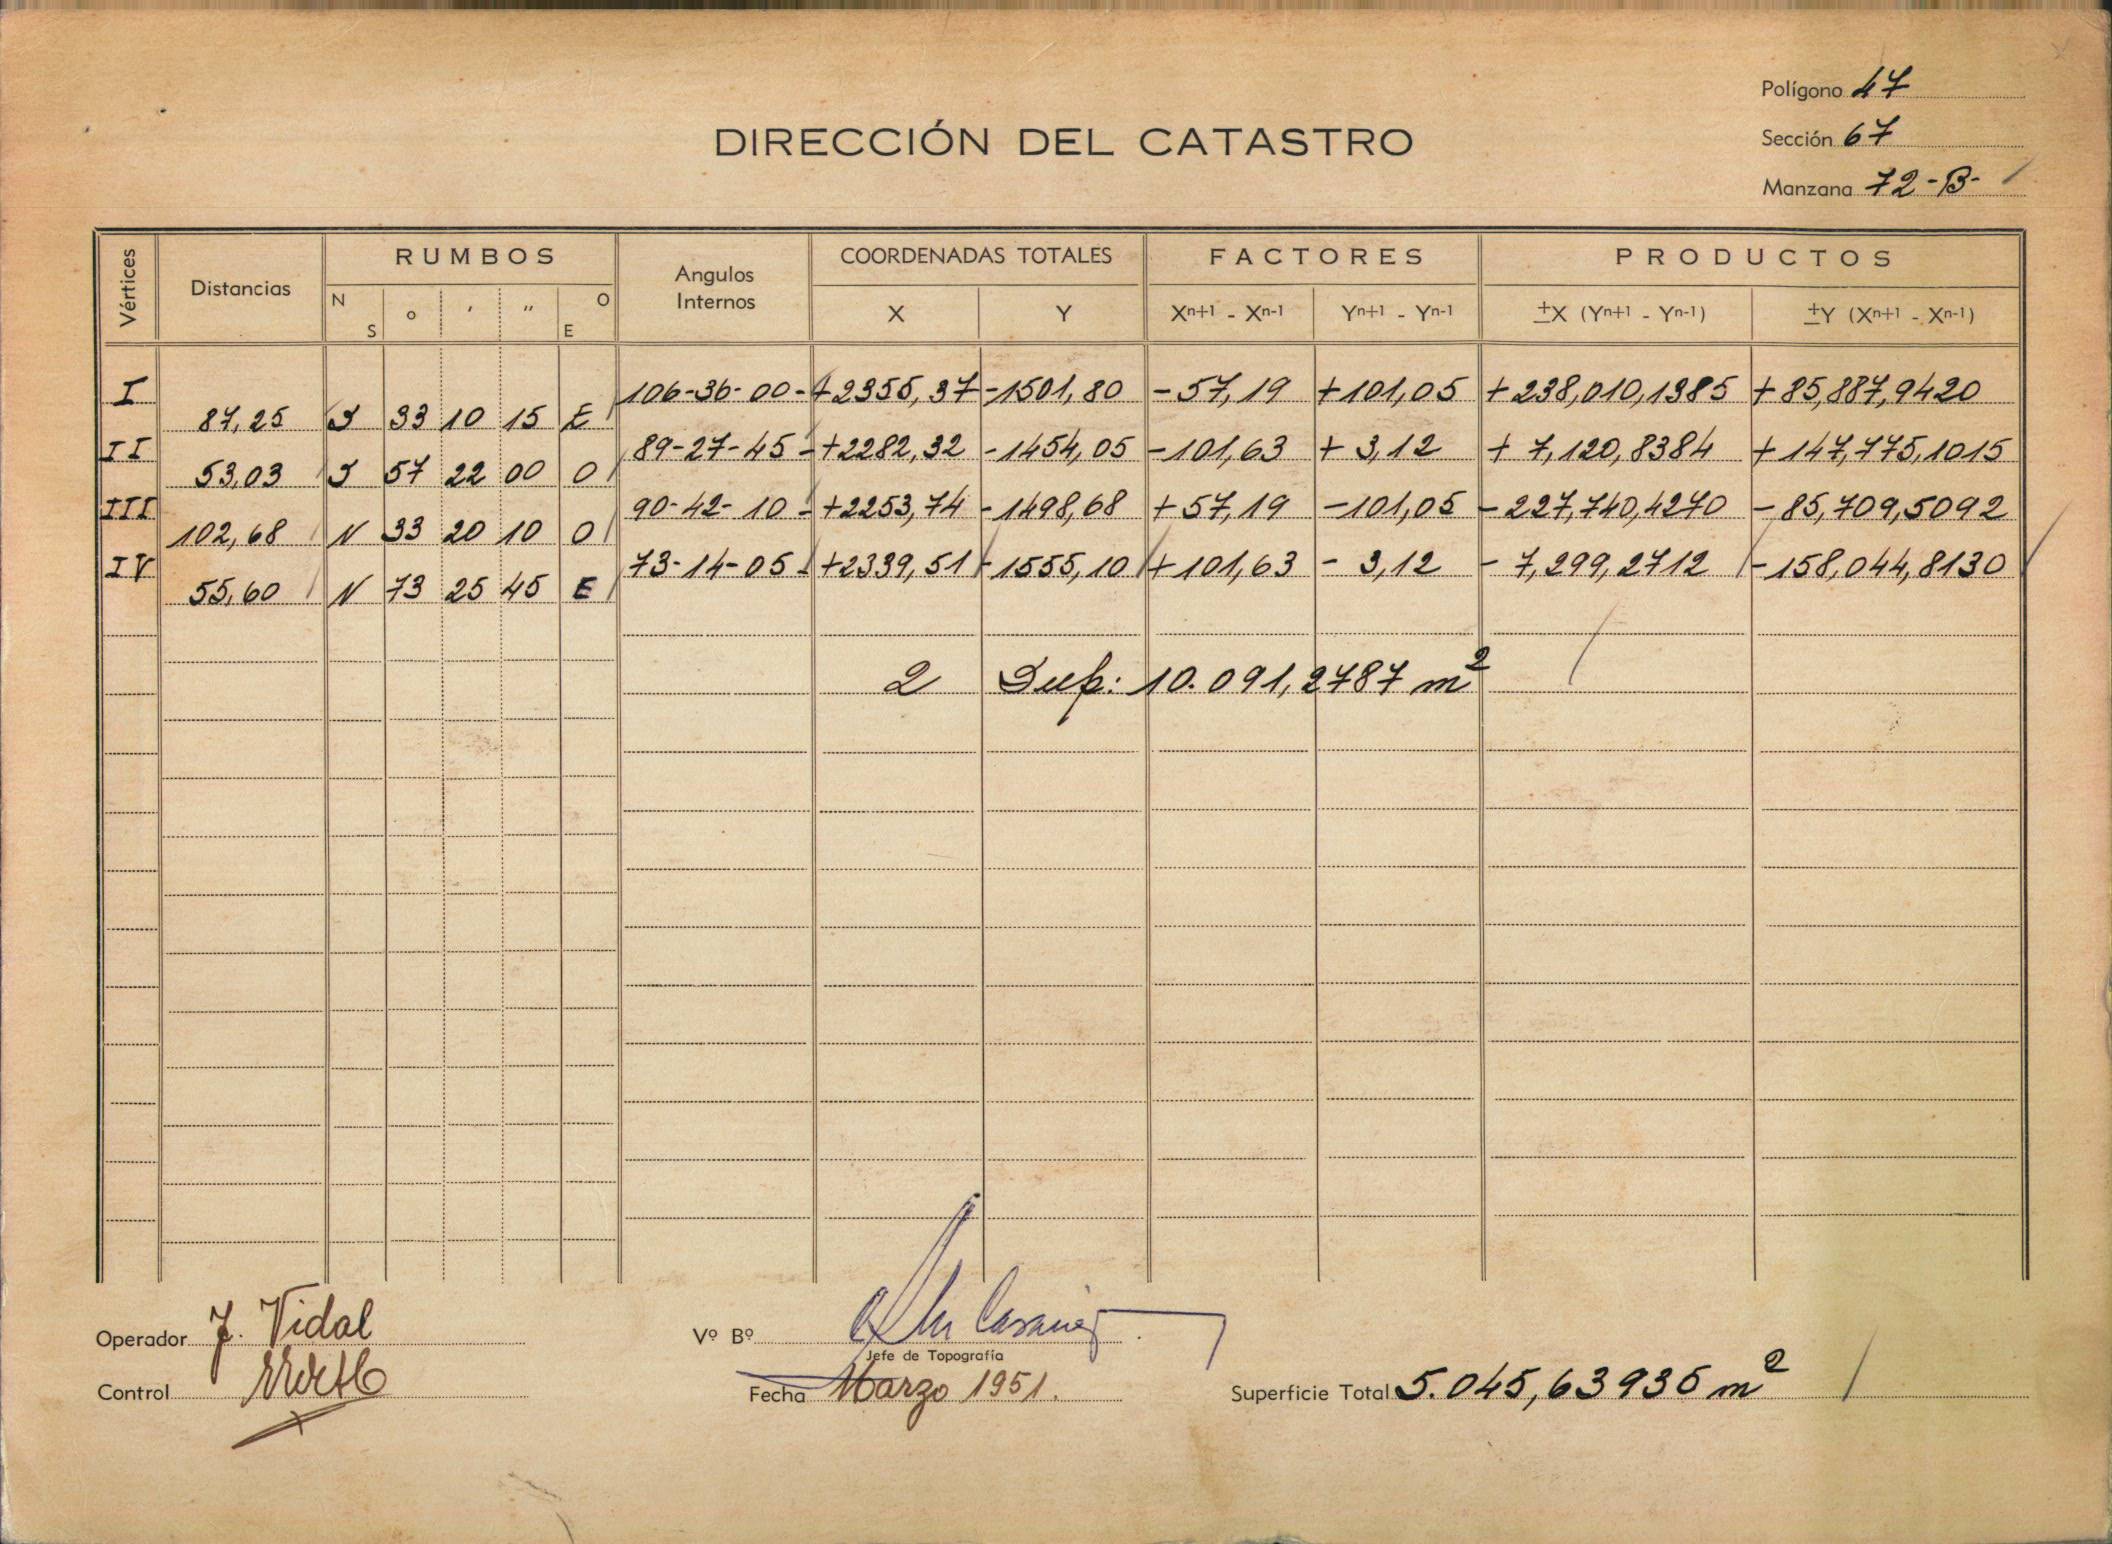 Polígono 47
DIRECCIÓN DEL CATASTRO
Sección 67
Manzana 72-B-
Vértices Distancias RUMBOS Angulos Internos COORDENADAS TOTALES FACTORES PRODUCTOS
N S o ' " O E X Y Xn+1 - Xn-1 Yn+1 - Yn-1 ±X (Yn+1 - Yn-1) ±Y (Xn+1 - Xn-1)
I 106-36-00- +2355,37 -1501,80 -57,19 +101,05 +238,010,1385 +85,887,9420
87,25 S 33 10 15 E
II 89-27-45- +2282,32 -1454,05 -101,63 +3,12 +7,120,8384 +147,775,1015
53,03 S 57 22 00 O
III 90-42-10- +2253,74 -1498,68 +57,19 -101,05 -227,740,4270 -85,709,5092
102,68 N 33 20 10 O
IV 73-14-05- +2339,51 -1555,10 +101,63 -3,12 -7,299,2712 -158,044,8130
55,60 N 73 25 45 E
2 Sup: 10.091,2787 m2
Operador J. Vidal Vº Bº
Jefe de Topografía
Control Fecha Marzo 1951. Superficie Total 5.045,63935 m2